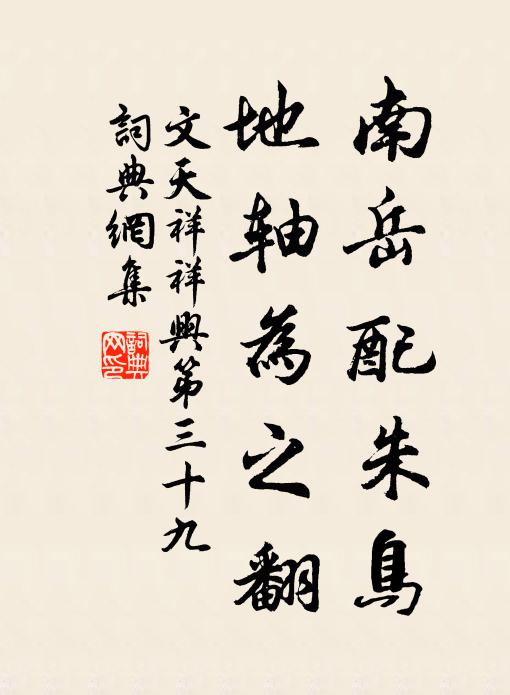 南岳配朱鳥
地軸為之翻
文天祥祥興第三十九
詞典網集
詞典网印